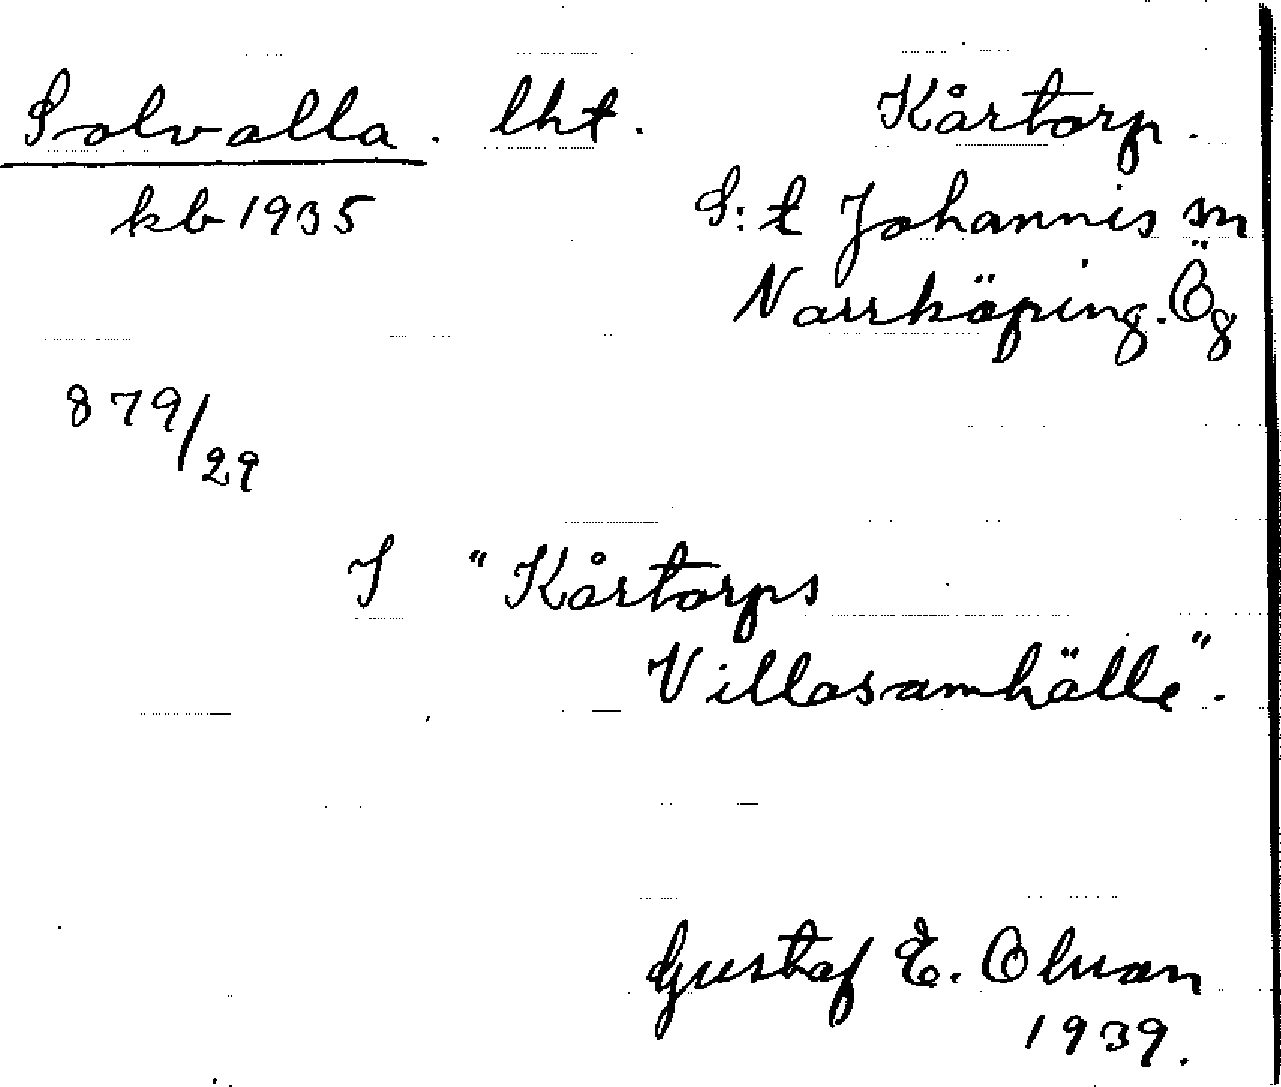 Solvalla. lht. Kårtorp.
kb 1935 S:t Johannis sn
Norrköping. Ög
879/29
I "Kårtorps
Villasamhälle".
Gustaf E.
1939.